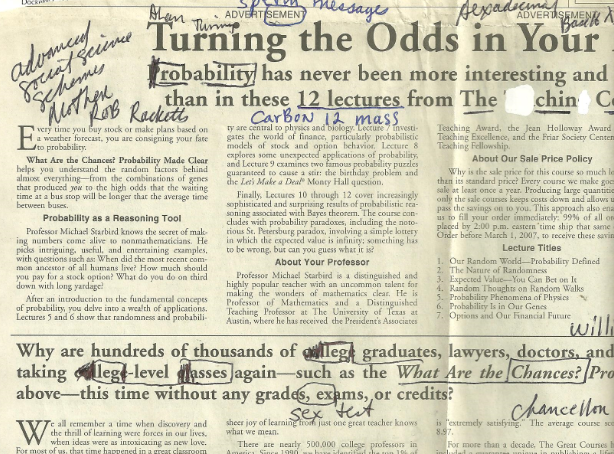 ADVERTISEMENT
messages
ADVERTISEMENT
Alan
Turning the Odds in Your
advanced
Social Science
Schemes
robability has never been more interesting and
Mother
Rob Racketts
than in these 12 lectures from The chin C
Carbon 12 mass
Every time you buy stock or make plans based on
a weather forecast, you are consigning your fate
to probability.
What Are the Chances? Probability Made Clear
helps you understand the random factors behind
almost everything—from the combinations of genes
that produced you to the high odds that the waiting
time at a bus stop will be longer than the average time
between buses.
Probability as a Reasoning Tool
Professor Michael Starbird knows the secret of mak-
ing numbers come alive to nonmathematicians. He
picks intriguing, useful, and entertaining examples,
with questions such as: When did the most recent com-
mon ancestor of all humans live? How much should
you pay for a stock option? What do you do on third
down with long yardage?
After an introduction to the fundamental concepts
of probability, you delve into a wealth of applications.
Lectures 5 and 6 show that randomness and probabili-
ty are central to physics and biology. Lecture 7 investi-
gates the world of finance, particularly probabilistic
models of stock and option behavior. Lecture 8
explores some unexpected applications of probability,
and Lecture 9 examines two famous probability puzzles
guaranteed to cause a stir: the birthday problem and
the Let's Make a Deal® Monty Hall question.
Finally, Lectures 10 through 12 cover increasingly
sophisticated and surprising results of probabilistic rea-
soning associated with Bayes theorem. The course con-
cludes with probability paradoxes, including the noto-
rious St. Petersburg paradox, involving a simple lottery
in which the expected value is infinity; something has
to be wrong, but can you guess what it is?
About Your Professor
Professor Michael Starbird is a distinguished and
highly popular teacher with an uncommon talent for
making the wonders of mathematics clear. He is
Professor of Mathematics and a Distinguished
Teaching Professor at The University of Texas at
Austin, where he has received the President's Associates
Teaching Award, the Jean Holloway Award
Teaching Excellence, and the Friar Society Center
Teaching Fellowship.
About Our Sale Price Policy
Why is the sale price for this course so much le
than its standard price? Every course we make goe
sale at least once a year. Producing large quantit
only the sale courses keeps costs down and allows u
pass the savings on to you. This approach also ena
us to fill your order immediately: 99% of all or
placed by 2:00 p.m. eastern time ship that same
Order before March 1, 2007, to receive these saving
Lecture Titles
1. Our Random World—Probability Defined
2. The Nature of Randomness
3. Expected Value—You Can Bet on It
4. Random Thoughts on Random Walks
5. Probability Phenomena of Physics
6. Probability Is in Our Genes
7. Options and Our Financial Future
willi
Why are hundreds of thousands of olleg graduates, lawyers, doctors, and
taking olleg-level lasses again—such as the What Are the Chances? Pro
above—this time without any grades, exams, or credits?
sex test
Chancellor
We all remember a time when discovery and
the thrill of learning were forces in our lives,
when ideas were as intoxicating as new love.
For most of us, that time happened in a great classroom
sheer joy of learning from just one great teacher knows
what we mean.
There are nearly 500,000 college professors in
is "extremely satisfying." The average course sco
8.97.
For more than a decade, The Great Courses